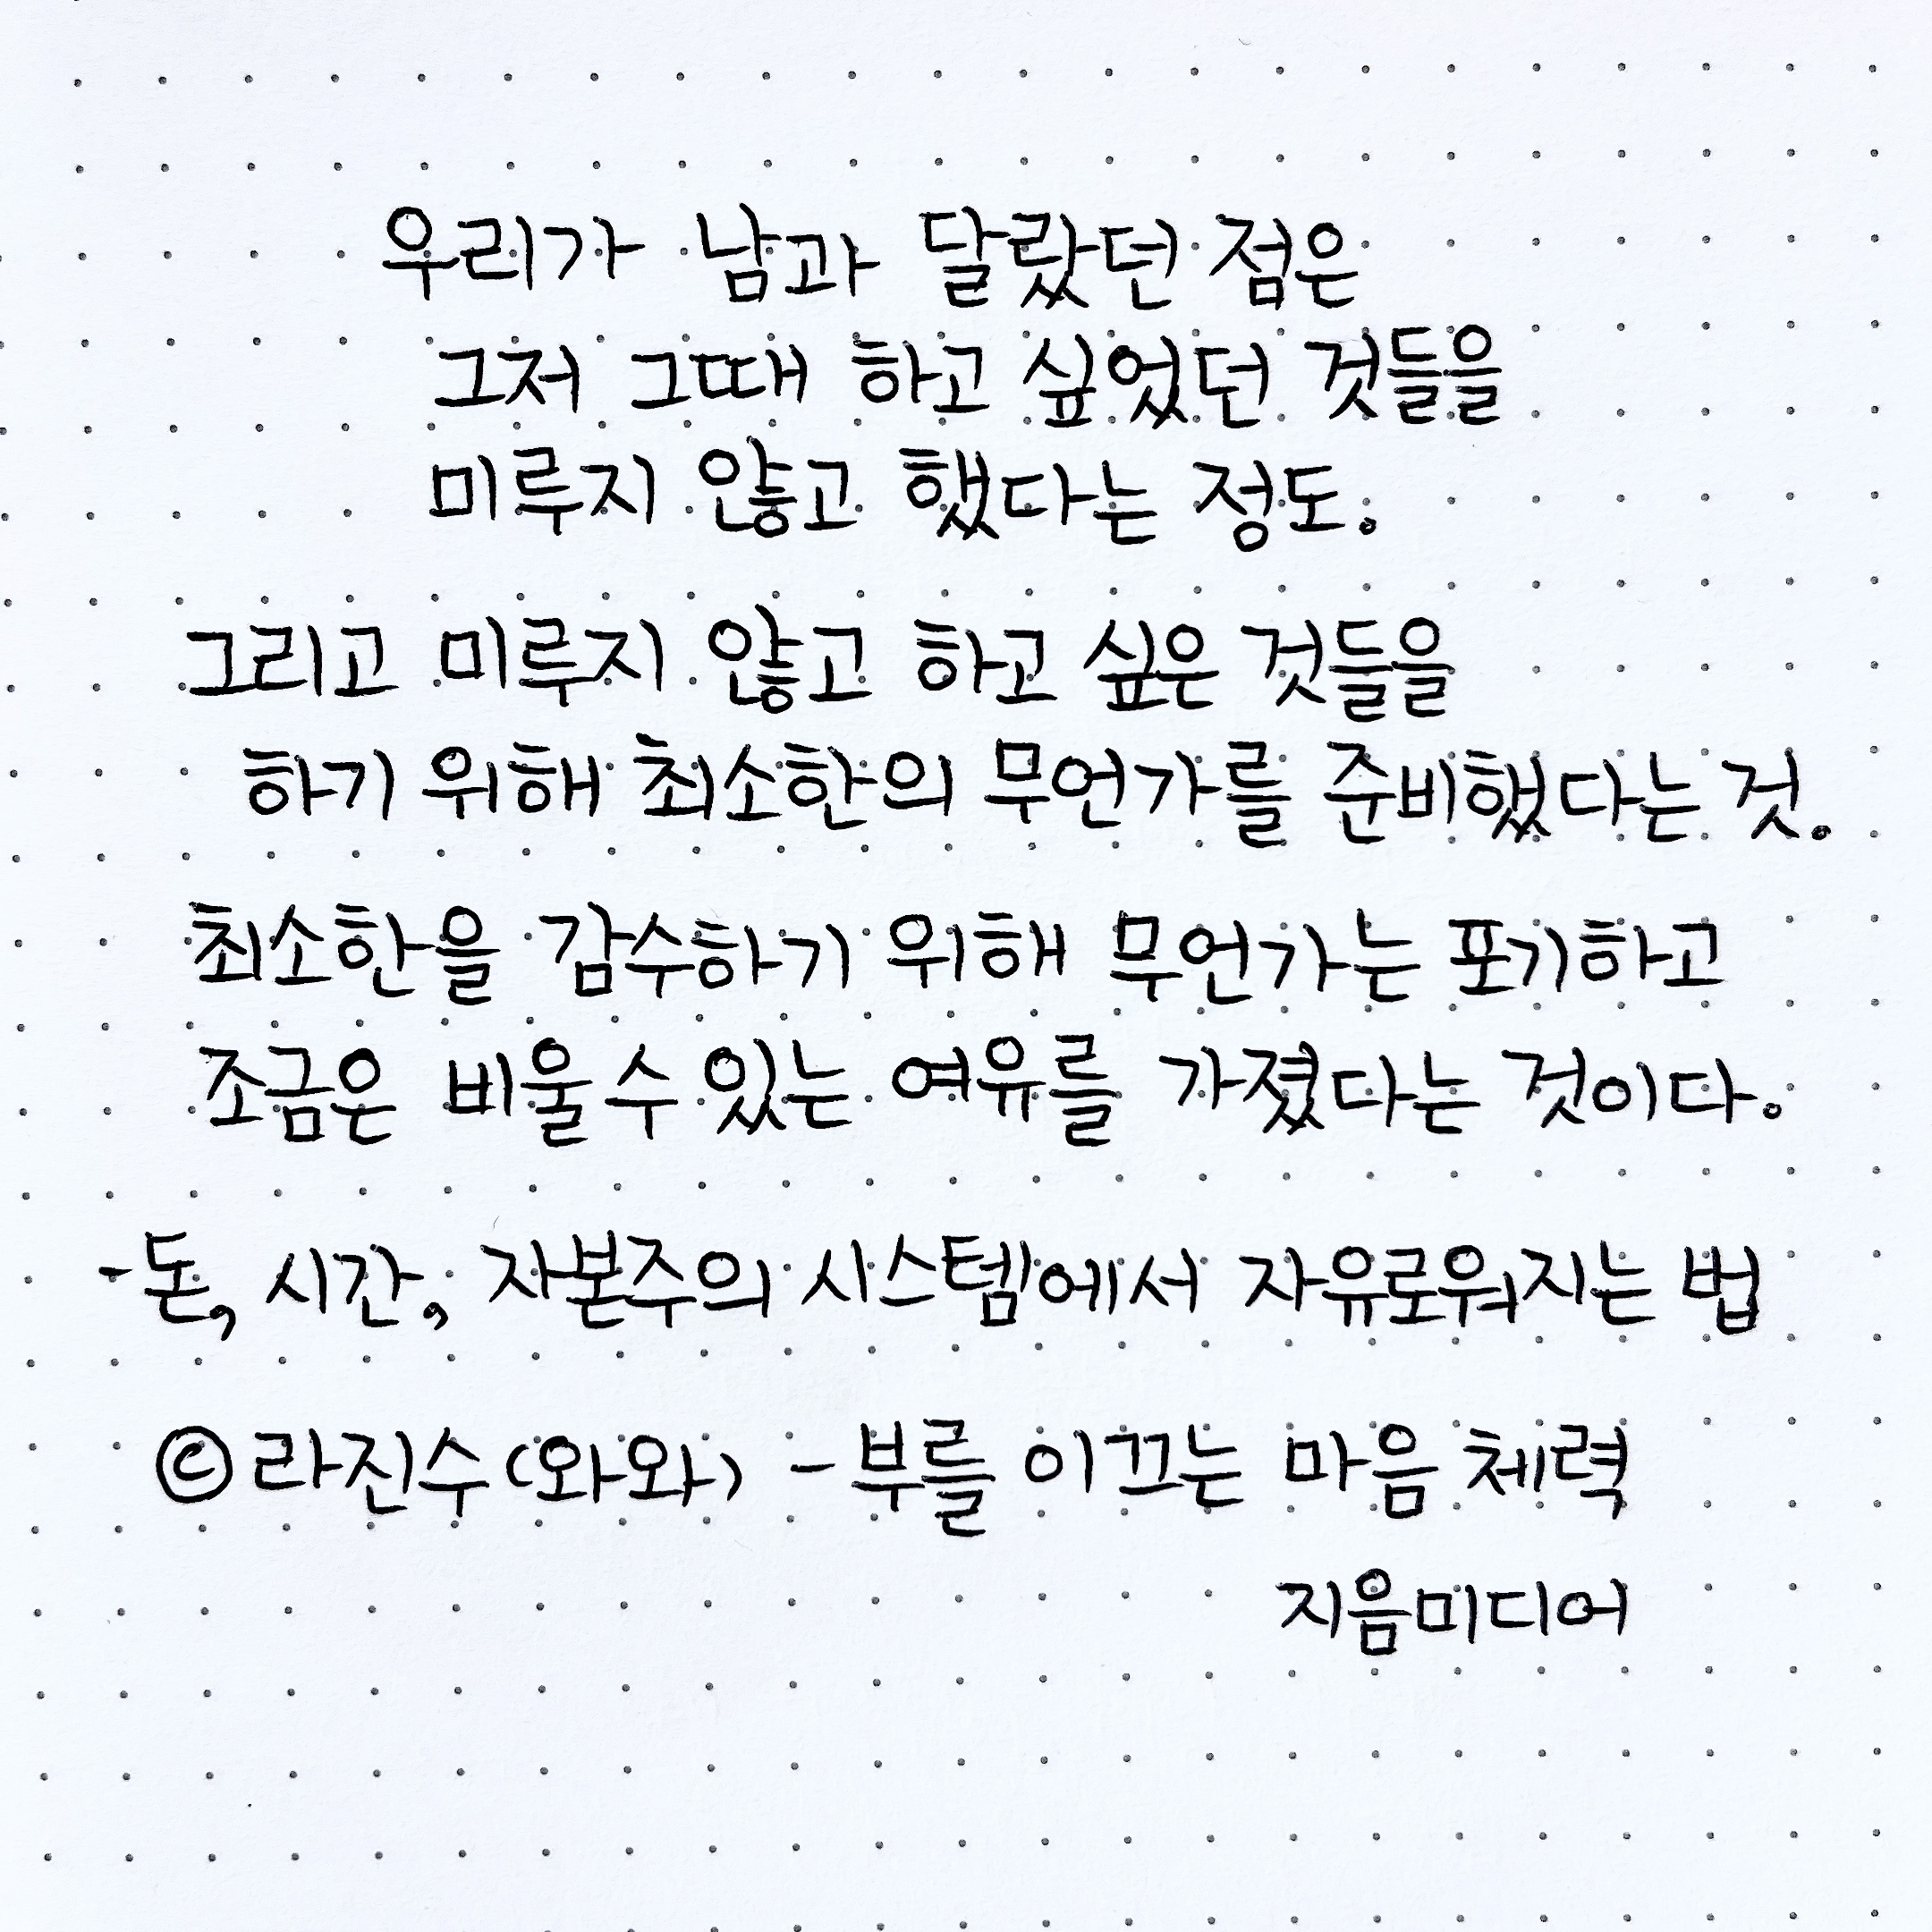 우리가 남과 달랐던 점은
그저 그때 하고 싶었던 것들을
미루지 않고 했다는 정도.
그리고 미루지 않고 하고 싶은 것들을
하기 위해 최소한의 무언가를 준비했다는 것.
최소한을 감수하기 위해 무언가는 포기하고
조금은 비울 수 있는 여유를 가졌다는 것이다.
-돈, 시간, 자본주의 시스템에서 자유로워지는 법
©라진수(와와) -부를 이끄는 마음 체력
지음미디어